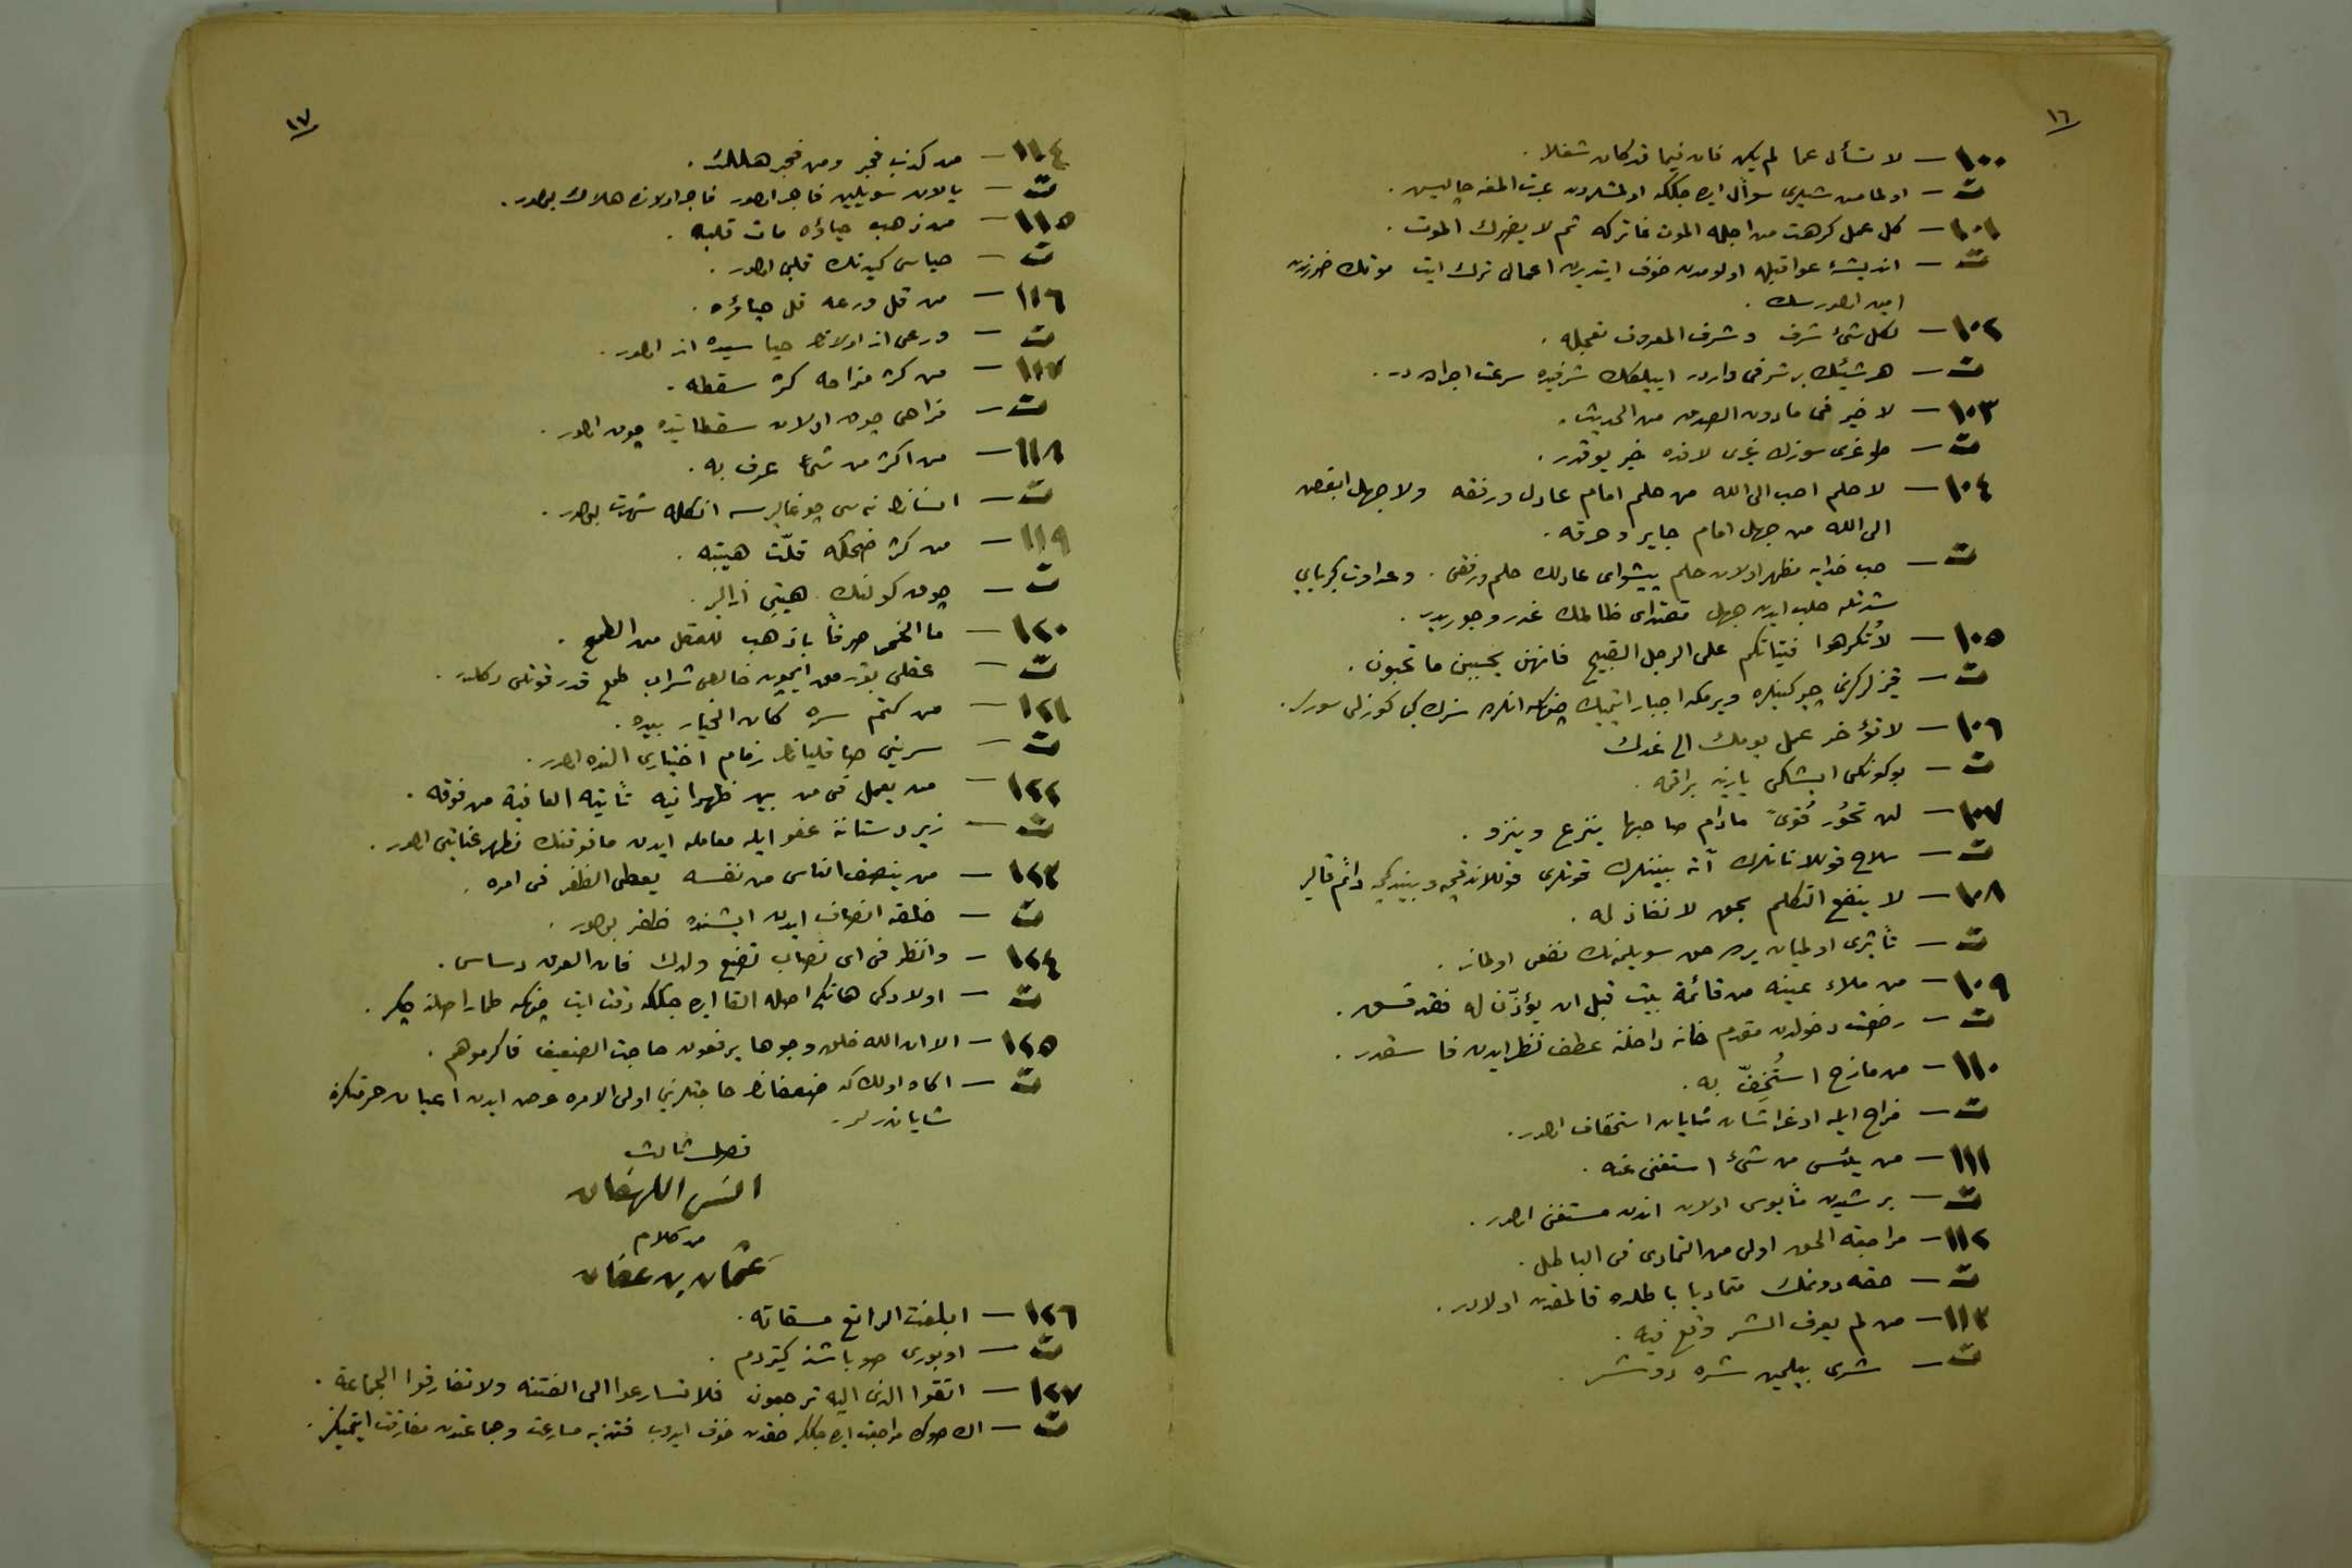 ١٦
١٠٠ — لا تسأل عما لم يكن فان فيما قد كان شغلا .
ت — اولمامش شيلرى سؤال ايده جككه اولمشلردن عبرت المغه چاليش .
١٠١ — كل عمل كرهت من اجله الموت فاتركه ثم لا يضرك الموت .
ت — انديشهٔ عواقبله اولومدن خوف ايتديرن اعمالى ترك ايت موتك ضررندن
امين اولورسك .
١٠٢ — لكل شئ شرف وشرف المعروف تعجيله .
ت — هر شيئك بر شرفى واردر ايبيلكك شرفيده سرعت اجراده در .
١٠٣ — لا خير فى مادون الصدق من الحديث .
ت — طوغرى سوزك غيرى لافده خير يوقدر .
١٠٤ — لا حلم احب الى الله من حلم امام عادل ورفقه ولا جهل ابغض
الى الله من جهل امام جاير وخرقه .
ت — حب خدايه مظهر اولان حلم پيشواى عادلك حلم ورفقى . وعداوت كبريايى
شدتله جلب ايدن جهل مقتداى ظالمك غدر وجوريدر .
١٠٥ — لا تُكرهوا فتياتكم على الرجل القبيح فانهن يحببن ما تحبون .
ت — قيزلركزى چركينلره ويرمكه اجبار ايتميك چونكه انلرده سزك كبى كوزلى سورلر .
١٠٦ — لا تؤخر عمل يومك الى غدك
ت — بوكونكى ايشكى يارينه براقمه .
١٠٧ — لن تخُور قُوىً مادام صاحبها ينزع وينزو .
ت — سلاح قوللانانلرك آته بيننلرك قوتلرى قوللاندقجه وبيندكجه دائم قالير
١٠٨ — لا ينفع التكلم بحق لا نفاذ له .
ت — تأثيرى اولميان يرده حق سويلمه نك نفعى اولماز .
١٠٩ — من ملاء عينيه من قائمة بيت قبل ان يؤذّن له فقد فسق .
ت — رخصت دخولدن مقدم خانه داخلنه عطف نظر ايدن فاسقدر .
١١٠ — من مازح استُخِفّ به .
ت — مزاح ايله اوغراشان شايان استخفاف اولور .
١١١ — من يئس من شئ استغنى عنه .
ت — بر شيدن مأيوس اولان اندن مستغنى اولور .
١١٢ — مراجعة الحق اولى من التمادى فى الباطل .
ت — حقه دونمك متماديا باطلده قالمقدن اولادر .
١١٣ — من لم يعرف الشر وقع فيه .
ت — شرى بيلمين شره دوشر .
١٧
١١٤ — من كذب فجر ومن فجر هلك .
ت — يالان سويليين فاجر اولور فاجر اولانده هلاك بولور .
١١٥ — من ذهب حياؤه مات قلبه .
ت — حياسى كيدنك قلبى اولور .
١١٦ — من قل ورعه قل حياؤه .
ت — ورعى از اولانك حياسيده از اولور .
١١٧ — من كثر مزاحه كثر سقطه .
ت — مزاحى چوق اولان سقطاتيده چوق اولور .
١١٨ — من اكثر من شئ عرف به .
ت — انسانك نه سى چوغاليرسه انكله شهرت بولور .
١١٩ — من كثر ضحكه قلّت هيبته .
ت — چوق كولنك هيبتى ازالير .
١٢٠ — ما الخمر صرفاً باذهب للعقل من الطمع .
ت — عقلى بوزمق ايچون خالص شراب طمع قدر قوتلى دكلدر .
١٢١ — من كتم سره كان الخيار بيده .
ت — سرينى صاقليانك زمام اختيارى النده اولور .
١٢٢ — من يعمل فى من بين ظهرانيه تأتيه العافية من فوقه .
ت — زيردستاننه عفو ايله معامله ايدن مافوقنك مظهر عنايتى اولور .
١٢٣ — من ينصف الناس من نفسه يعطى الظفر فى امره .
ت — خلقه انصاف ايدن ايشنده ظفر بولور .
١٢٤ — وانظر فى اى نصاب تضع ولدك فان العرق دساس .
ت — اولادكى هانكى اصله القا ايده جككه دقت ايت چونكه طمار اصلنه چكر .
١٢٥ — الا ان الله خلق وجوها يرفعون حاجت الضعيف فاكرموهم .
ت — اكاه اولك كه ضعفانك حاجتلرينى اولى الامره عرض ايدن اعيان حرمتلره
شاياندرلر .
فصل ثالث
انس اللهفان
من كلام
عثمان بن عفان
١٢٦ — ابلغت الراتع مسقاته .
ت — اوبورى صو باشنه كيتردم .
١٢٧ — اتقوا الذى اليه ترجعون فلا تسارعوا الى الفتنه ولا تفارقوا الجماعة .
ت — اك صوك مراجعت ايده جككز حقدن خوف ايدوب فتنه يه مسارعت وجماعتدن مفارقت ايتميكز .